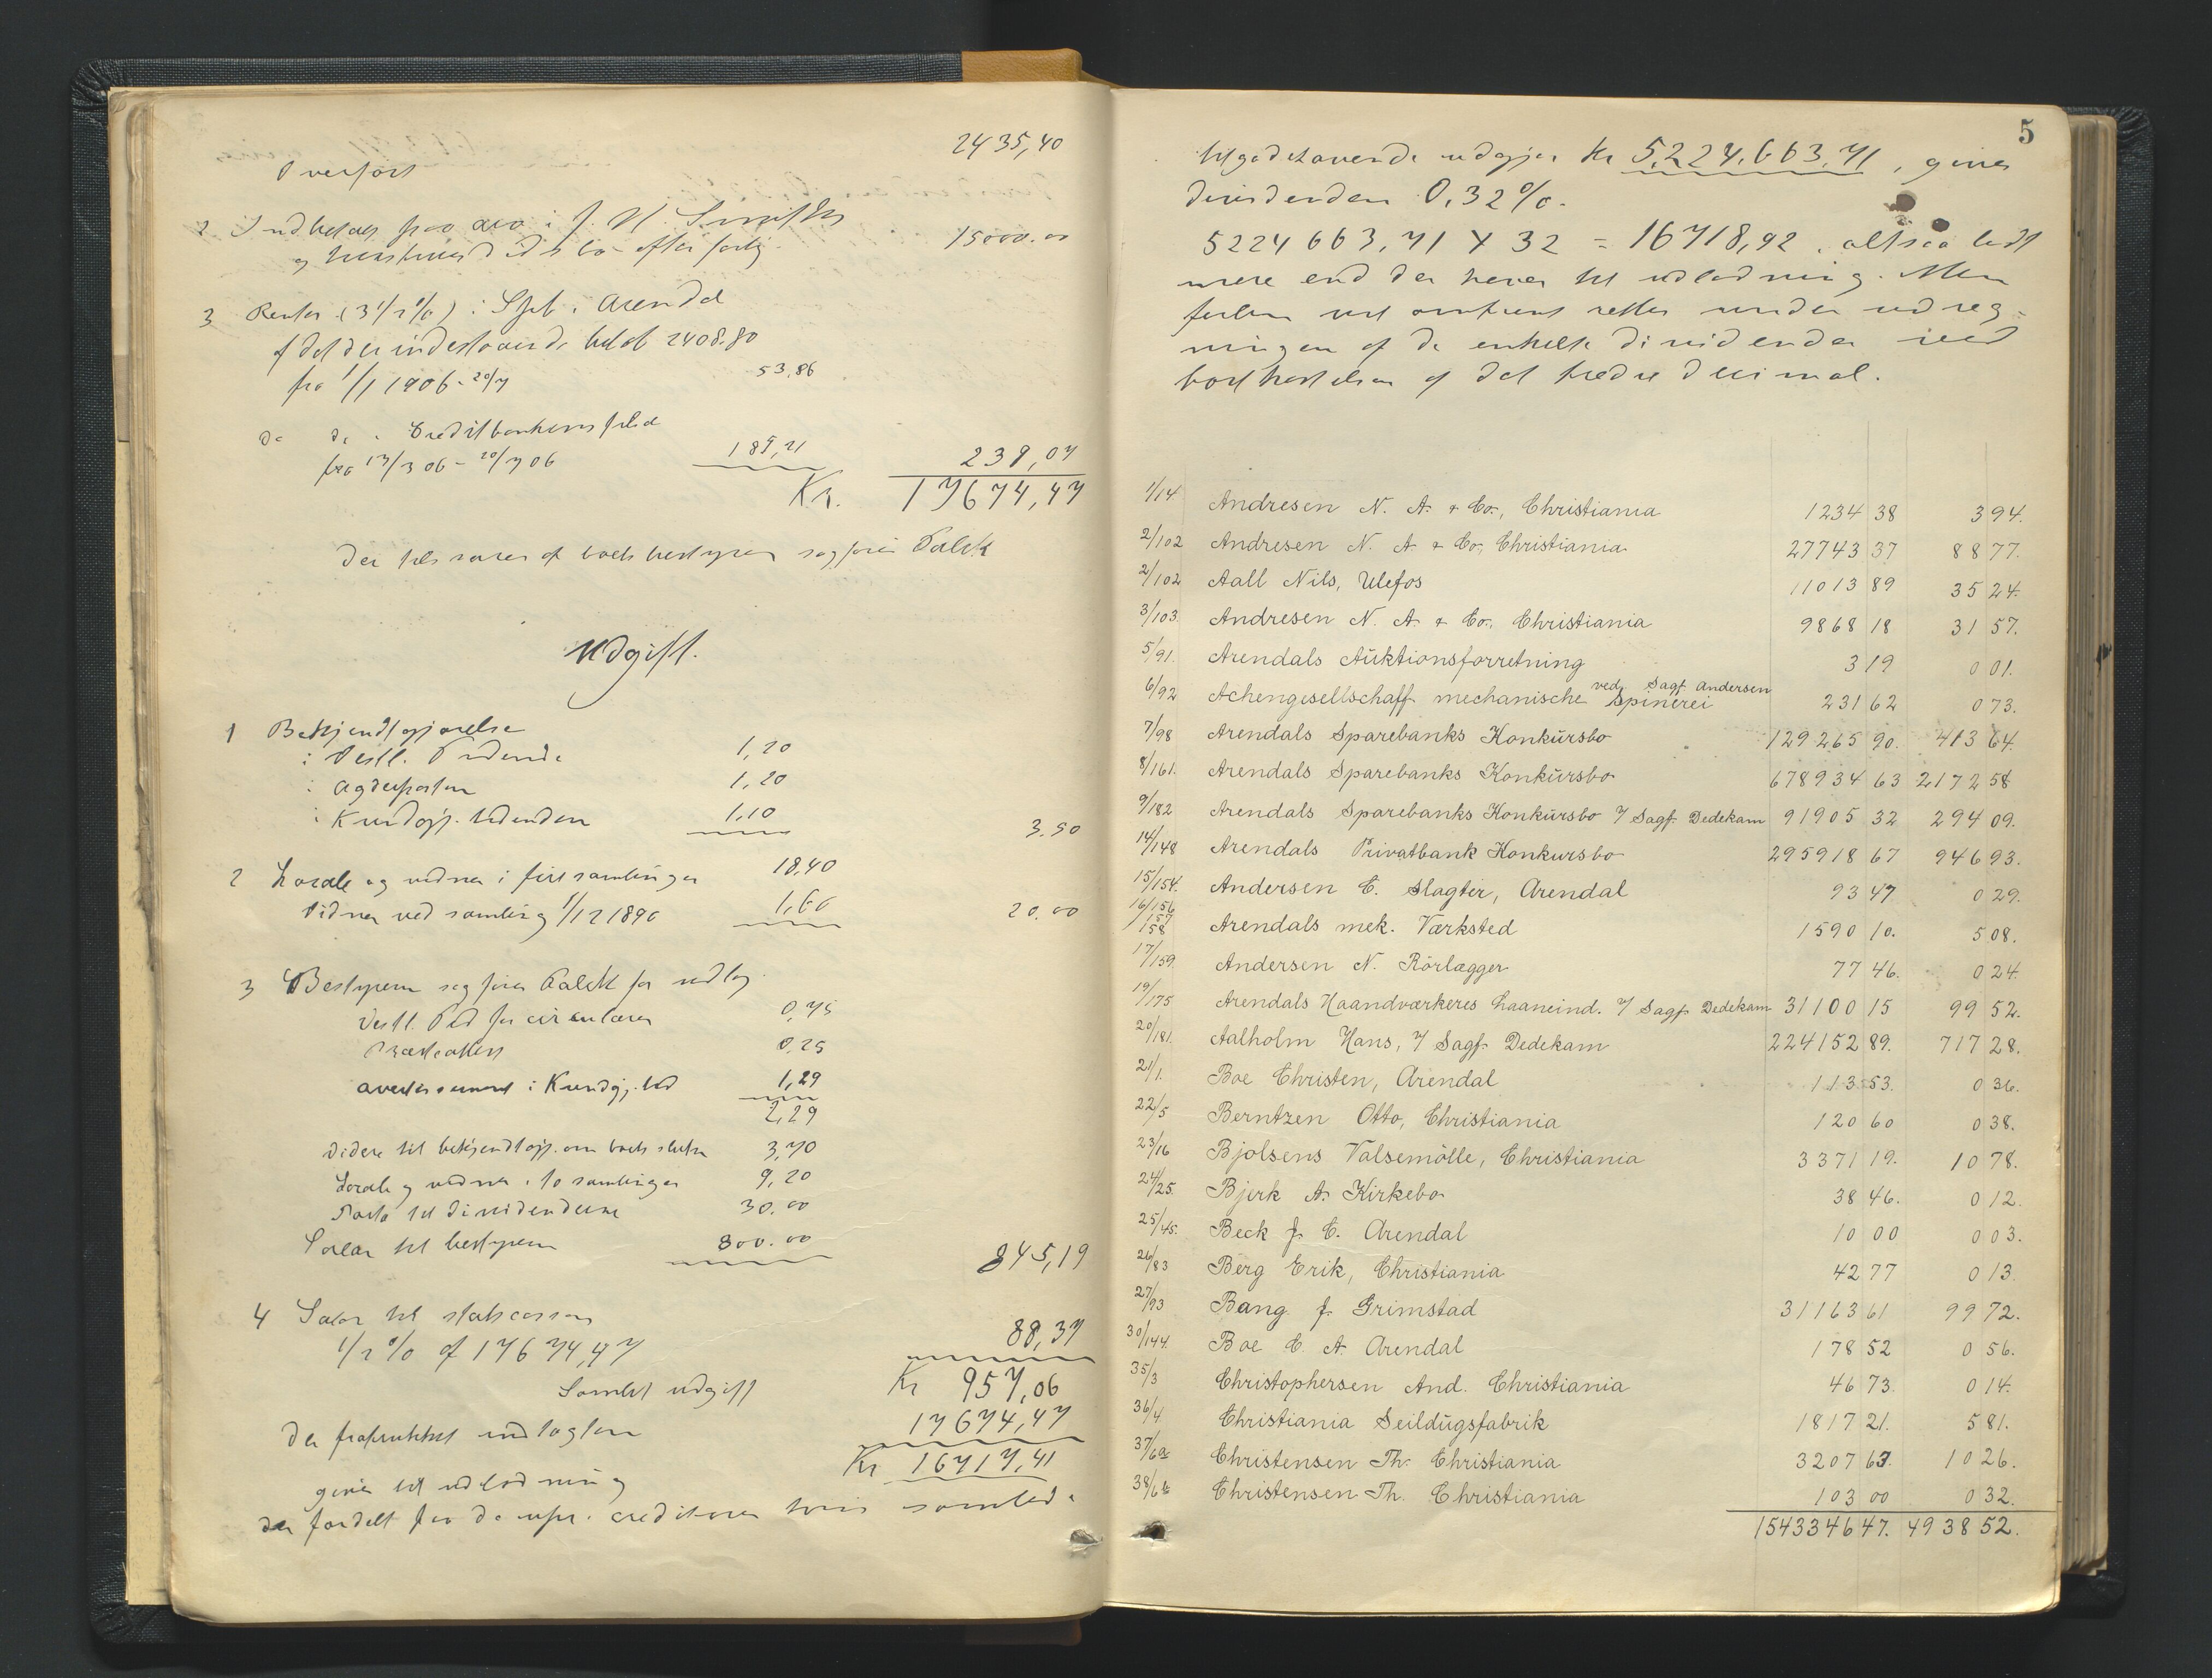 Overført 2435,40
2 Indbetalt fra aco i J. H. Smiths
og hustrues dødsbo efter forlig. 15000.00
3 Renter (3 1/2 %) i Spb. i Arendal
af det der indestaaende beløb 2408.80
fra 1/1 1906 - 20/7 53,86
do do i Creditbankens filial
fra 17/3 06 - 20/7 06 185,21 239,07
Kr. 17674,47
der tilsvares af boets bestyrer sagfører Falck
Udgift.
1 Bekjendtgjørelse
i Vestl. Tidende 1,20
i Agderposten 1,20
i Kundgj. tidenden 1,10 3.50
2 Locale og vidner i fire samlinger 18,40
Vidner ved samling 1/12 1890 1,60 20.00
3 Bestyreren sagfører Falck for udlæg
Vestl. Tid for circulærer 0,75
0,25
avertissement i Kundgj. tid 1,29
2,29
Videre til bekjendtgj. om boets slutn 3,70
Locale og vidner i to samlinger 9,20
Porto til dividenderne 30.00
Salær til bestyreren 800.00 845,19
4 Salær til statscassen
1/2 % af 17674,47 88,37
Samlet udgift Kr 957,06
der fratrukket indtægten 17674,47
giver til udlodning Kr 16717,41
der fordelt paa de upr. creditorer hvis samlede
5
tilgodehavende udgjør Kr 5,224,663,71, giver
dividenden 0,32 %.
5224663,71 X 32 = 16718,92, altsaa lidt
mere end der haves til udlodning. Men
feilen vil omtrent rettes under udreg-
ningen af de enkelte dividender ved
bortkastelsen af det tredie decimal.
1/14 Andresen N. A. & Co., Christiania 1234 38 3 94.
2/102 Andresen N. A & Co., Christiania 27743 37 88 77.
2/102 Aall Nils, Ulefos 11013 89 35 24.
3/103. Andresen N. A. & Co., Christiania 9868 18 31 57.
5/91. Arendals Auktionsforretning 3 19 0 01.
6/92 Achengesellschaff mechanische Spinerei ved Sagf. Andersen 231 62 0 73.
7/98 Arendals Sparebanks Konkursbo 129265 90. 413 64.
8/161. Arendals Sparebanks Konkursbo 678934 63 2172 58
9/182 Arendals Sparebanks Konkursbo % Sagf. Dedekam 91905 32 294 09.
14/148 Arendals Privatbank Konkursbo 295918 67 946 93.
15/154. Andersen C. Slagter, Arendal 93 47 0 29.
16/156 157 158 Arendals mek. Værksted 1590 10. 5 08.
17/159. Andersen N. Rörlægger 77 46. 0 24
19/175 Arendals Haandværkeres Laaneind. % Sagf. Dedekam 31100 15 99 52.
20/181. Aalholm Hans, % Sagf. Dedekam 224152 89. 717 28.
21/1. Boe Christen, Arendal 113 53. 0 36.
22/5 Berntzen Otto, Christiania 120 60 0 38.
23/16 Bjolsens Valsemölle, Christiania 3371 19. 10 78.
24/25. Bjerk A. Kirkebo 38 46. 0 12.
25/45. Beck J. C. Arendal 10 00 0 03.
26/83 Berg Erik, Christiania 42 77 0 13.
27/93 Bang J. Grimstad 31163 61 99 72.
30/144. Boe C. A. Arendal 178 52 0 56.
35/3 Christophersen And. Christiania 46 73. 0 14.
36/4. Christiania Seildugsfabrik 1817 21. 5 81.
37/6a Christensen Th. Christiania 3207 63. 10 26.
38/6b Christensen Th. Christiania 103 00 0 32.
1543346 47. 4938 52.